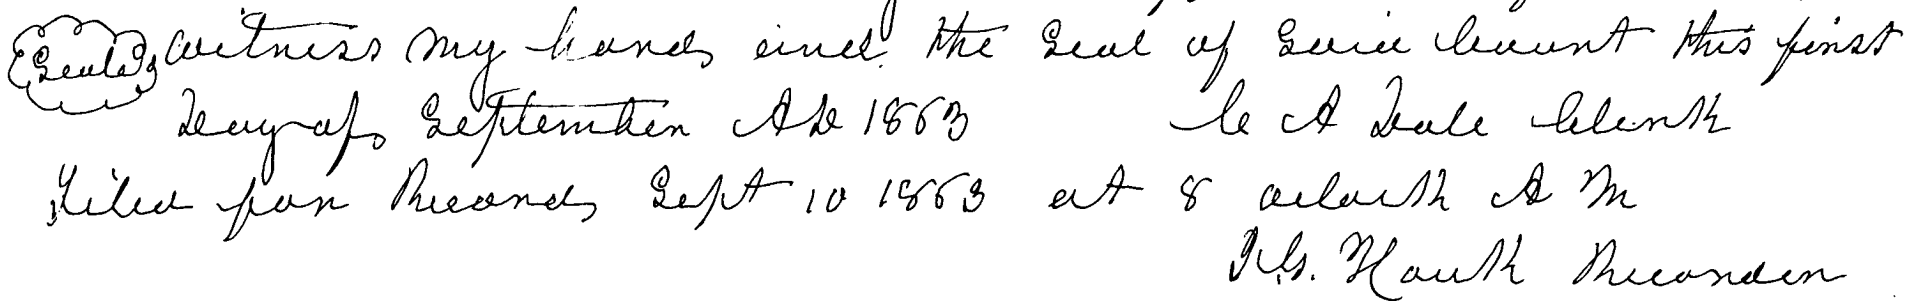 (Seal) witness my hand and the Seal of Said Court this first
Day of September AD 1863 C A Dale Clerk
Filed for Record Sept 10 1863 at 8 oclock A M
Houk Recorder